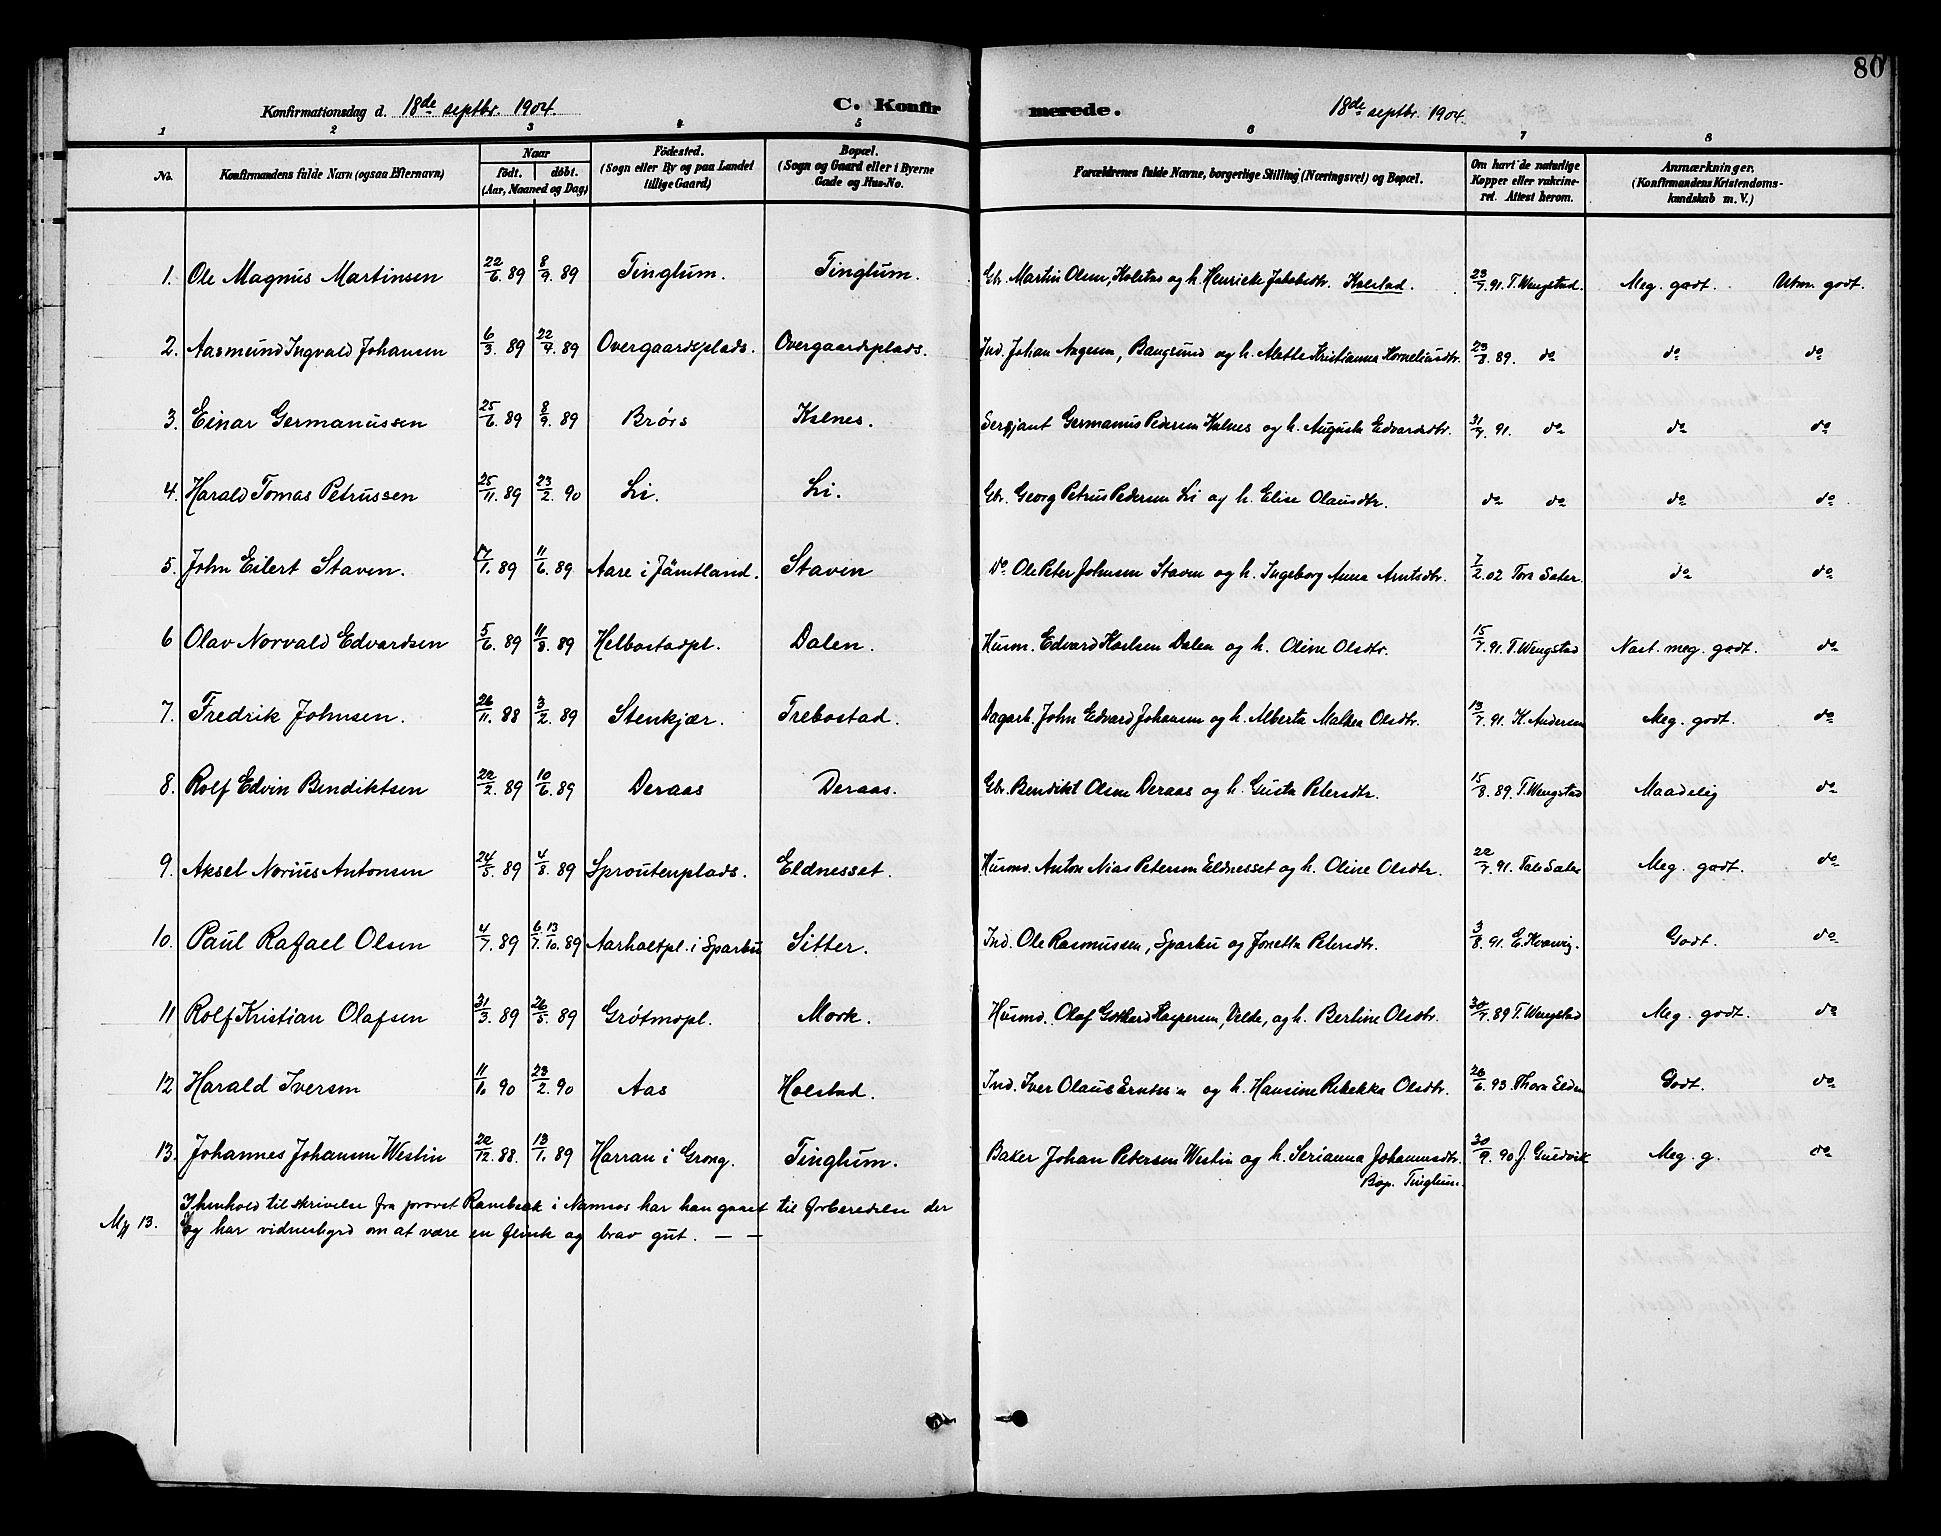 80
Konfirmationsdag d. 18de septbr. 1904. C. Konfirmerede. 18de septbr. 1904.
1 2 3 4 5 6 7 8
No. Konfirmandens fulde Navn (ogsaa Efternavn) Naar födt. döbt. (Aar, Maaned og Dag) Födested. (Sogn eller By og paa Landet tillige Gaard) Bopæl. (Sogn og Gaard eller i Byerne Gade og Hus-No. Forældrenes fulde Navne, borgerlige Stilling (Næringsvei) og Bopæl. Om havt de naturlige Kopper eller vakcineret. Attest herom. Anmærkninger. (Konfirmandens Kristendomskundskab m. V.)
1. Ole Magnus Martinsen 22/6. 89 8/9. 89 Tinglum. Tinglum. Gbr. Martin Olsen, Holstad og h. Henrikke Jakobsdtr. Holstad. 23/7. 91. T. Wengstad. Meg. godt. Utm. godt.
2. Aasmund Ingvald Johansen 6/3. 89 22/4. 89 Overgaardsplads. Overgaardsplads. Ind. Johan Aagesen, Bangsund og h. Alette Kristianna Korneliusdtr. 23/8. 89. do do do
3. Einar Germanussen 25/6. 89 8/9. 89 Brörs Kalnes. Sersjant Germanus Pedersen Kalnes og h. Augusta Edvardsdtr. 31/7. 91. do do do
4. Harald Tomas Petrussen 25/11. 89 23/2. 90 Li. Li. Gbr. Georg Petrus Pedersen Li og h. Elise Olausdtr. do do do do
5. John Eilert Staven. 17/1. 89 11/6. 89 Aare i Jämtland. Staven Do Ole Peter Johnsen Staven og h. Ingeborg Anna Arntsdtr. 7/2. 02 Tora Sater. do do
6 Olav Norvald Edvardsen 5/6. 89 11/8. 89 Helbostadpl. Dalen. Husm. Edvard Karlsen Dalen og h. Oline Olsdtr. 15/7. 91. T. Wengstad Næst. meg. godt. do
7. Fredrik Johnsen. 26/11. 88 3/2. 89 Stenkjær. Trebostad. Dagarb. John Edvard Johansen og h. Alberta Malhea Olsdtr. 13/7. 91. K. Andersen Meg. godt. do
8. Rolf Edvin Bendiktsen 22/2. 89 10/6. 89 Deraas Deraas. Gbr. Bendikt Olsen Deraas og h. Gusta Petersdtr. 15/8. 89. T. Wengstad Maadelig do
9. Aksel Norius Antonsen 24/5. 89 4/8. 89 Sproutenplads. Eldnesset. Husmd. Anton Nias Petersen Eldnesset og h. Oline Olsdtr. 22/7. 91. Sater Meg. godt. do
10. Paul Rafael Olsen 4/7. 89 6/7. 13/10. 89 Aarholtpl. i Sparbu Sitter. Ind. Ole Rasmussen, Sparbu og Jonetta Petersdtr. 3/8. 91. E. Kvarvig. Godt. do
11 Rolf Kristian Olafsen 31/3. 89 26/5. 89 Grötmopl. Mork. Husmd. Olaf Gotthard Kaspersen, Velde, og h. Bertine Olsdtr. 30/7. 89 T. Wengstad Meg. godt. do
12 Harald Iversen 11/1 90 23/2. 90 Aas Holstad. Ind. Iver Olaus Erntsen og h. Hansine Rebekka Olsdtr. 26/6. 93. Thora Elden Godt. do
13. Johannes Johansen Westin 22/12. 88. 13/1. 89 Harran i Grong. Tinglum. Baker Johan Petersen Westin og h. Serianna Johannesdtr. 30/9. 90 J. Guldvik Meg. g. do
Bop. Tinglum.
No 13. I henhold til skrivelse fra provst Rambæk i Namsos har han gaaet til forberedelse der
og har vidnesbyrd om at være en flink og brav gut. — —